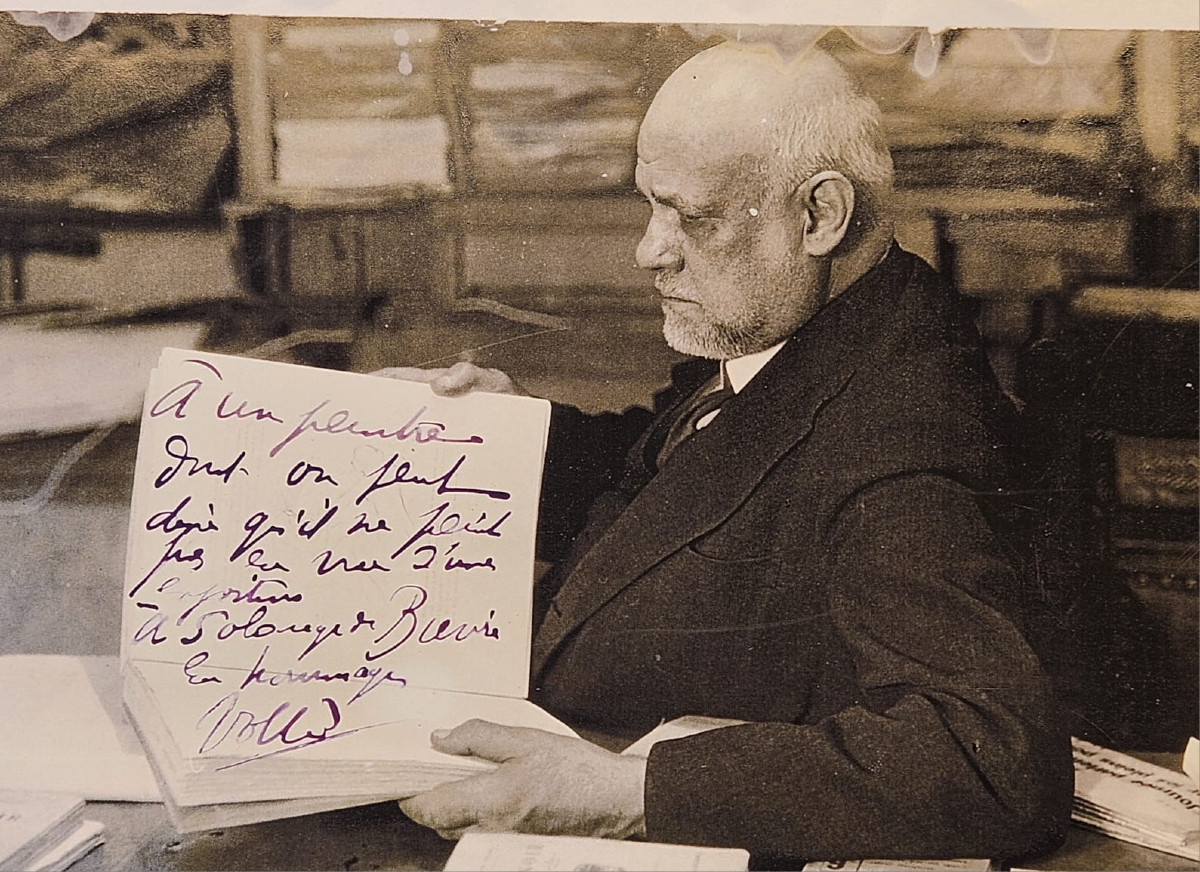 À un peintre
dont on peut
dire qu'il ne peint
pas en vue d'une
exposition
à Solange de Bièvre
En hommage